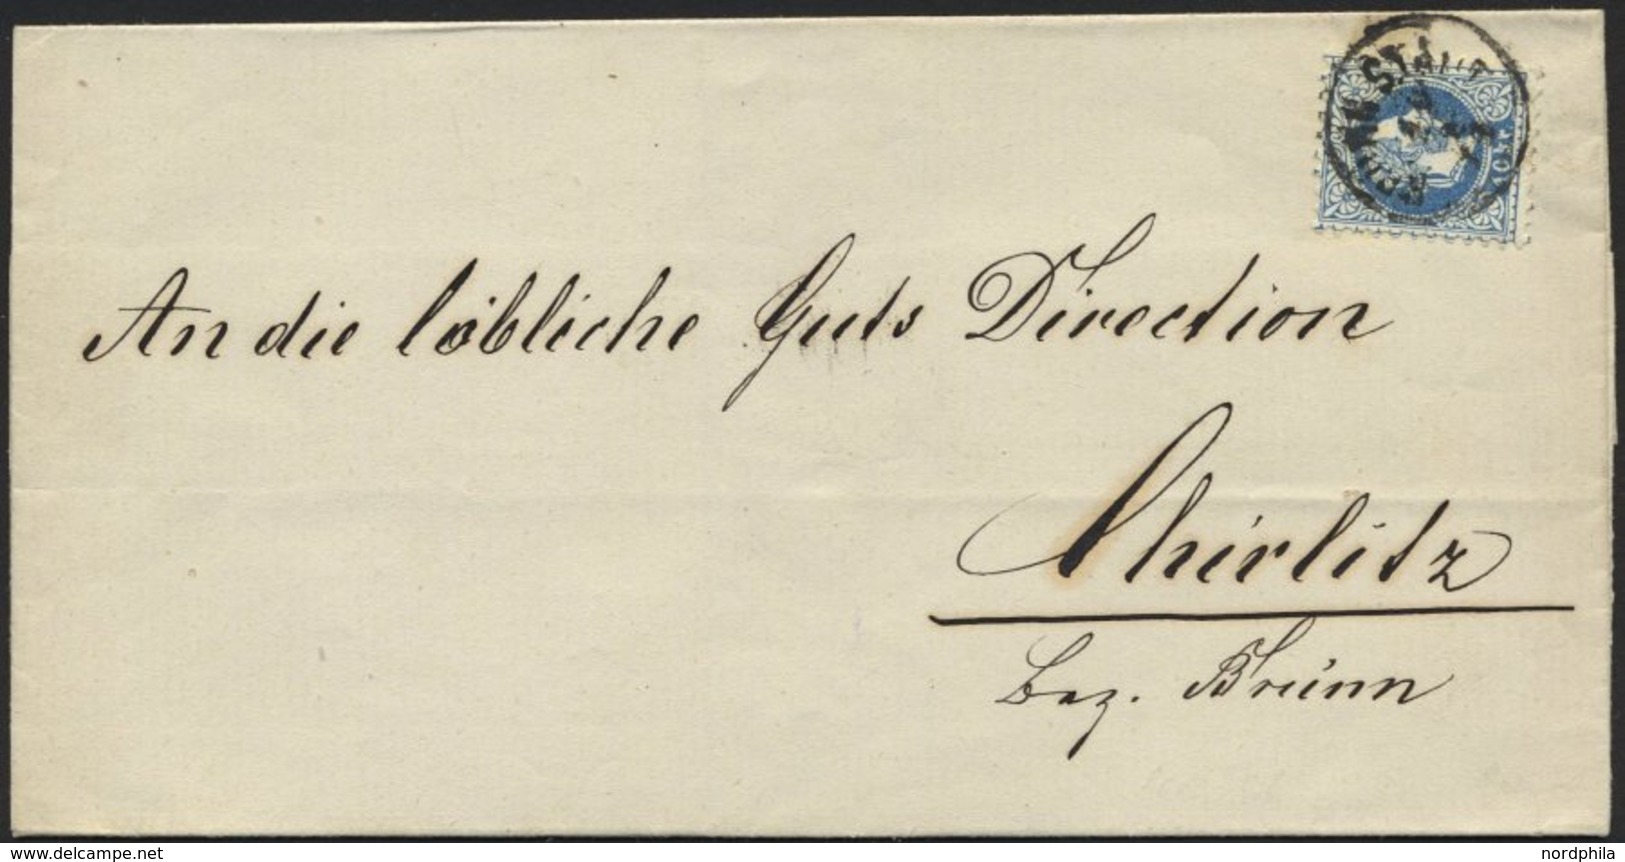 STADT
10 kr.
An die löbliche Guts Direction
Chirlitz
Bez. Brünn
delcampe.net
nordphila